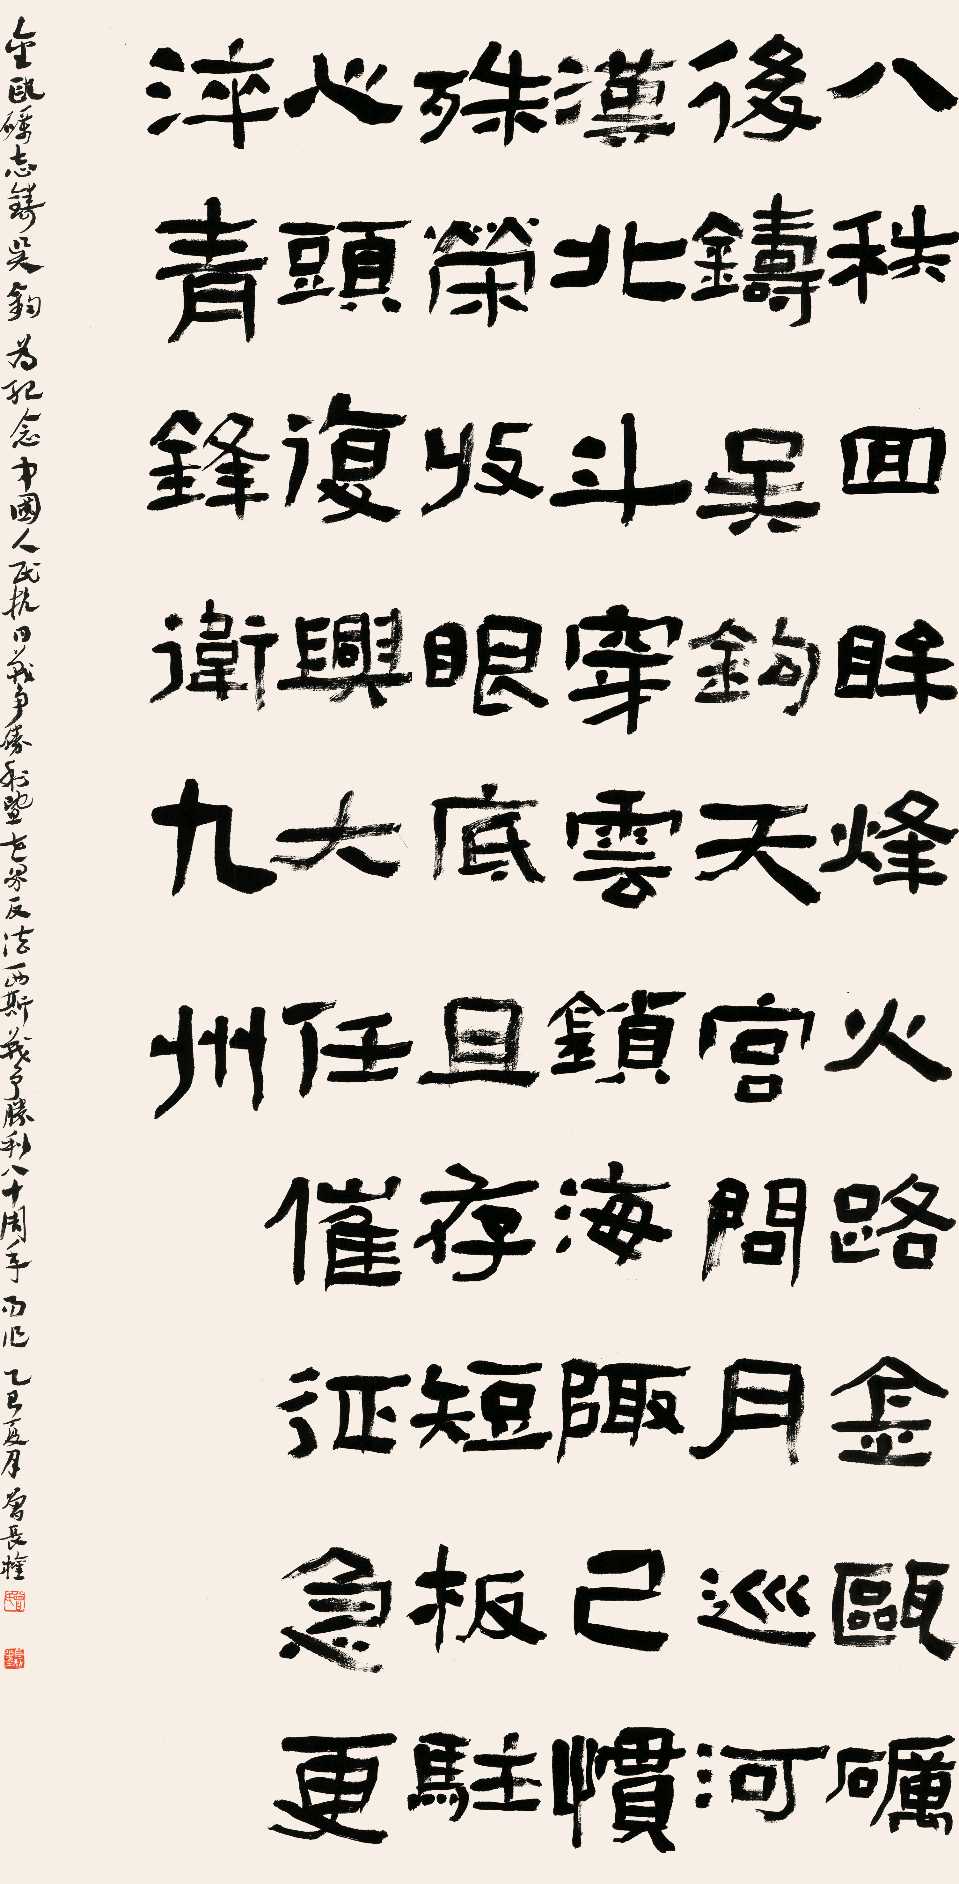 八秩回眸烽火路金甌礪
後鑄吴鈎天宫問月巡河
漢北斗穿雲鎖海陬已慣
殊榮收眼底旦存短板駐
心頭復興大任催征急更
淬青鋒衛九州
金甌礪志鑄吴鈎為紀念中國人民抗日戰争勝利暨世界反法西斯戰争勝利八十周年而作乙巳夏月曾長